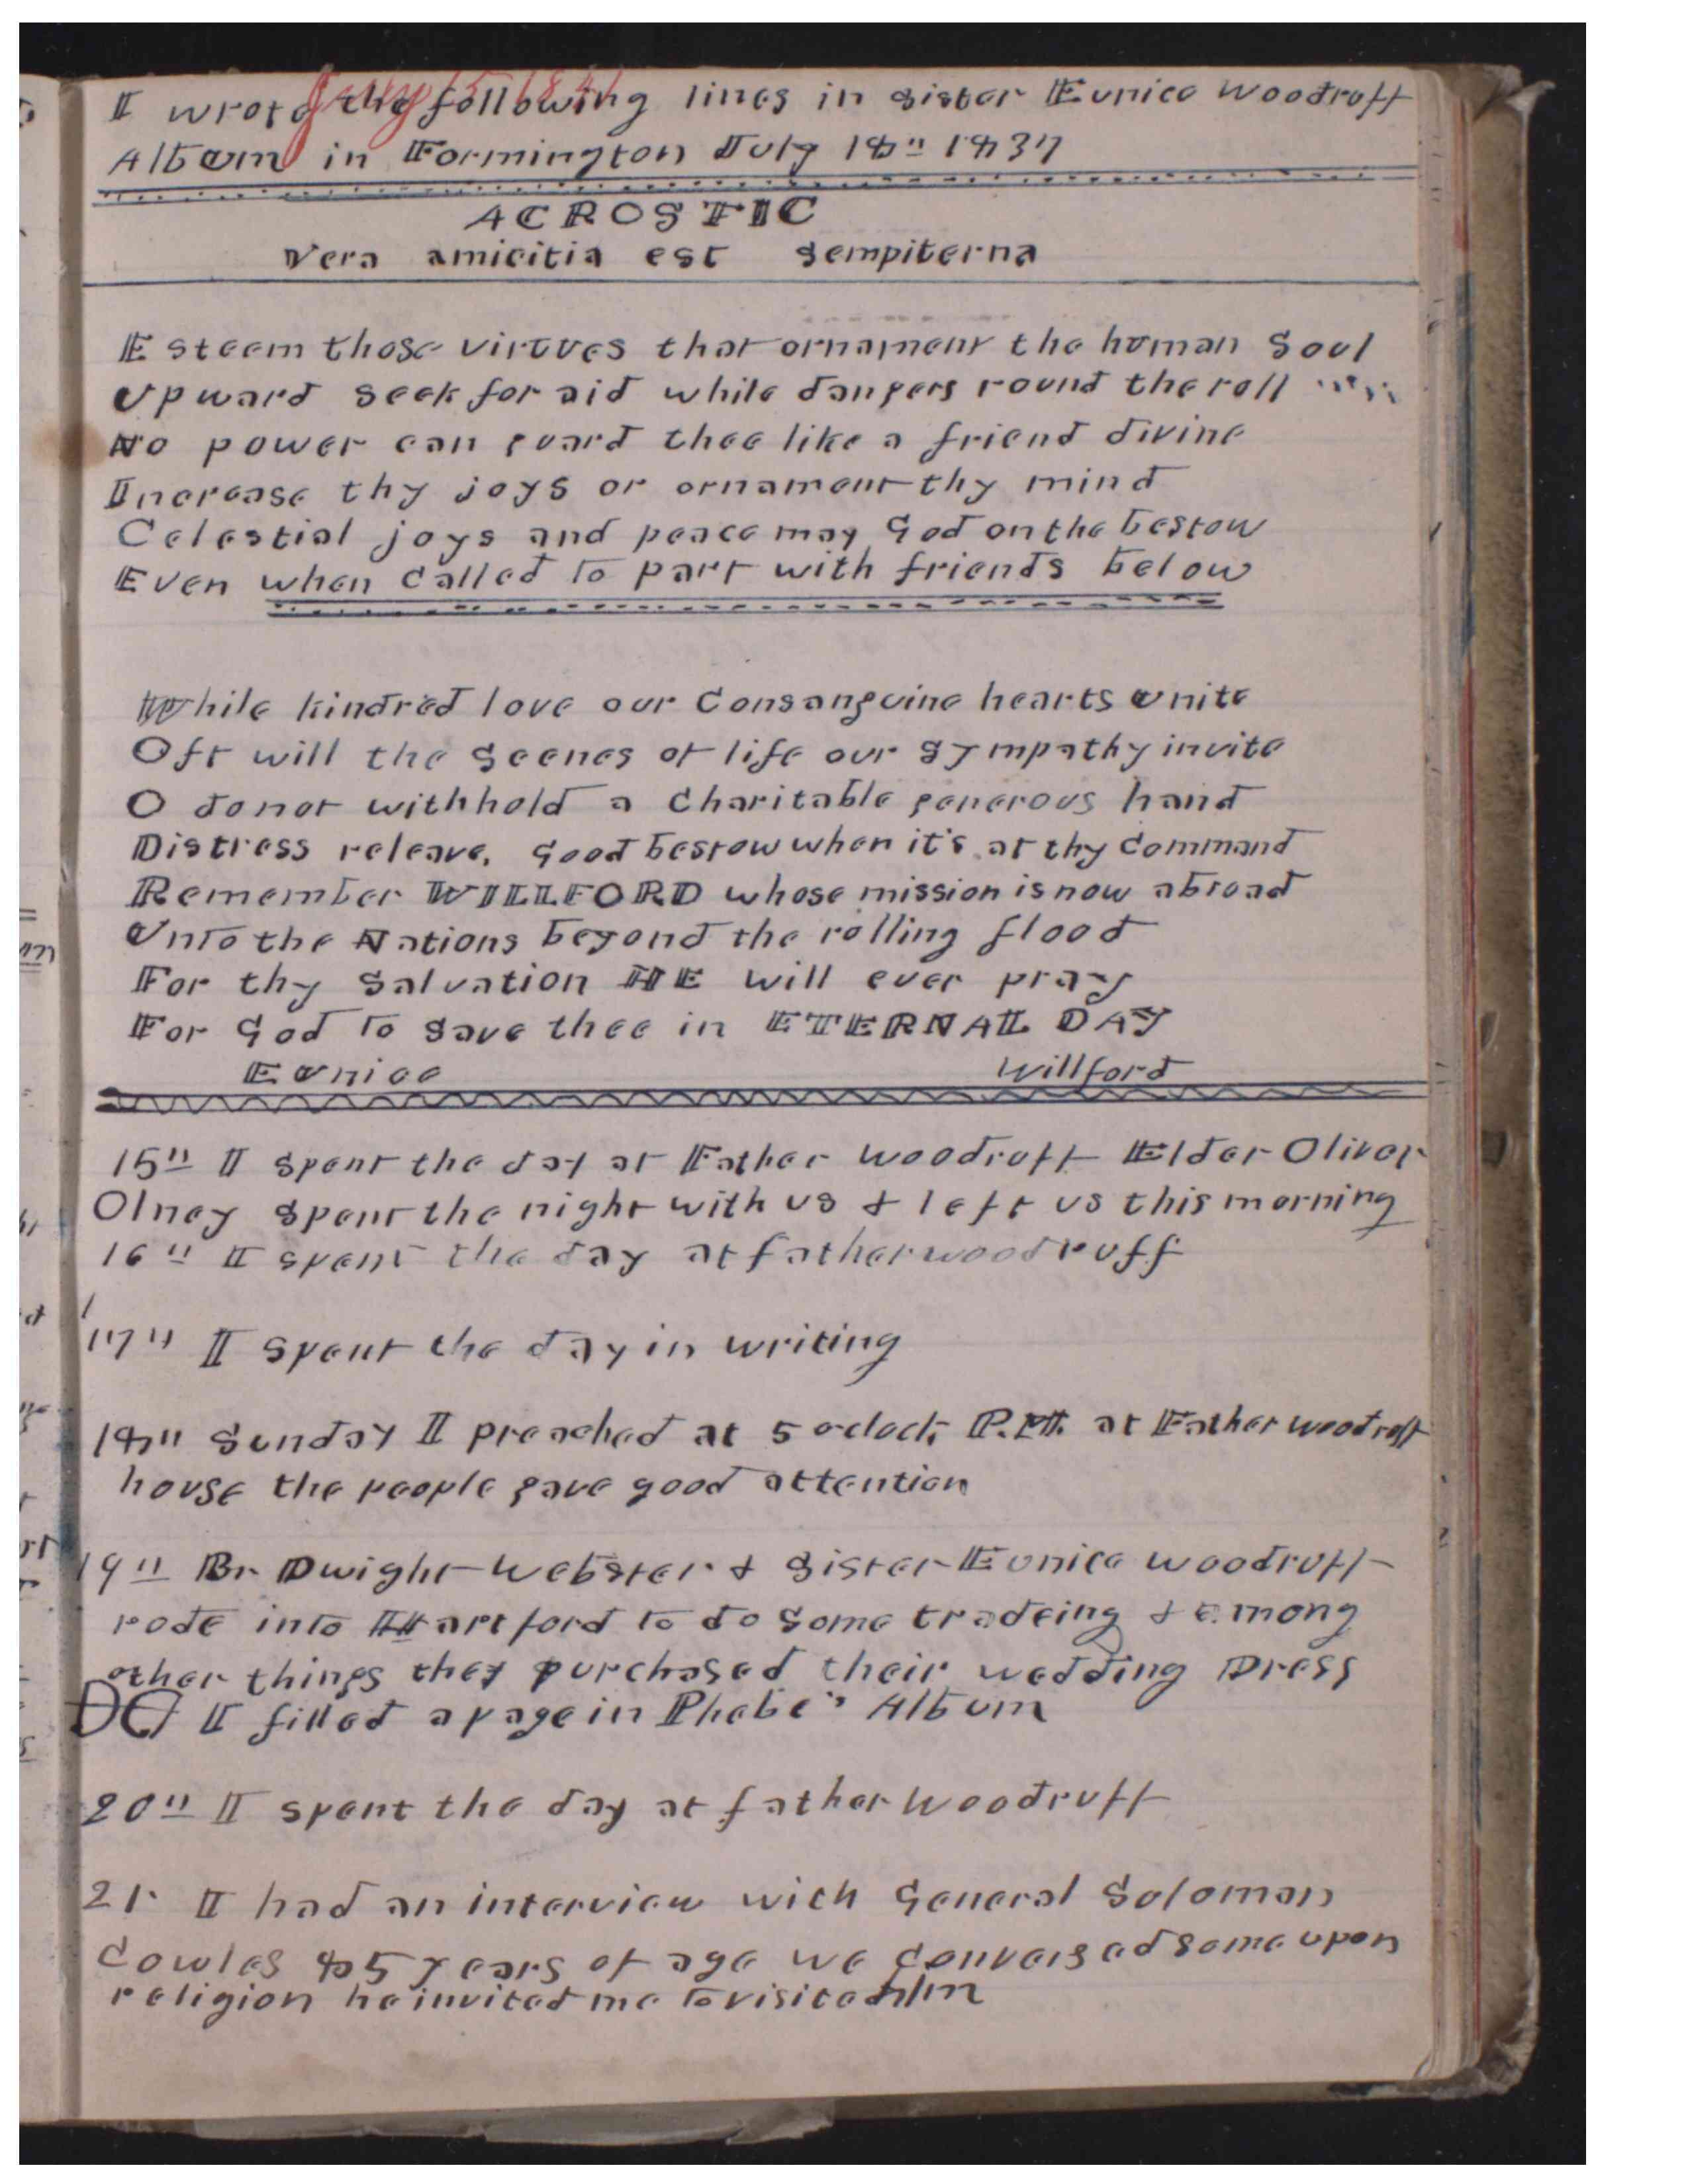 July 15 1841
I wrote the following lines in Sister Eunice Woodruff
Album in Formington July 18" 1837
ACROSTIC
Vera amicitia est Sempiterna
Esteem those virtues that ornament the human Soul
Upward Seek for aid while dangers round the roll
No power can guard thee like a friend divine
Increase thy joys or ornament thy mind
Celestial joys and peace may God on the bestow
Even when Called to part with friends below
While kindred love our Consanguine hearts unite
Oft will the Scenes of life our Sympathy invite
O do not withhold a Charitable generous hand
Distress releave, Good bestow when it's at thy Command
Remember WILLFORD whose mission is now abroad
Unto the Nations beyond the rolling flood
For thy Salvation HE will ever pray
For God to Save thee in ETERNAL DAY
Eunice Willford
15" I Spent the day at Father Woodruff Elder Oliver
Olney Spent the night with us & left us this morning
16" I spent the day at father woodruff
17" I Spent the day in writing
18" Sunday I preached at 5 oclock P.M. at Father Woodruff
house the people gave good attention
19" Br Dwight Webster & Sister Eunice Woodruff
rode into Hartford to do Some tradeing & among
other things they purchased their wedding Dress
I filled a page in Phebe's Album
20" I spent the day at father Woodruff
21. I had an interview with General Soloman
Cowles 85 years of age we Conversed some upon
religion he invited me to visited him